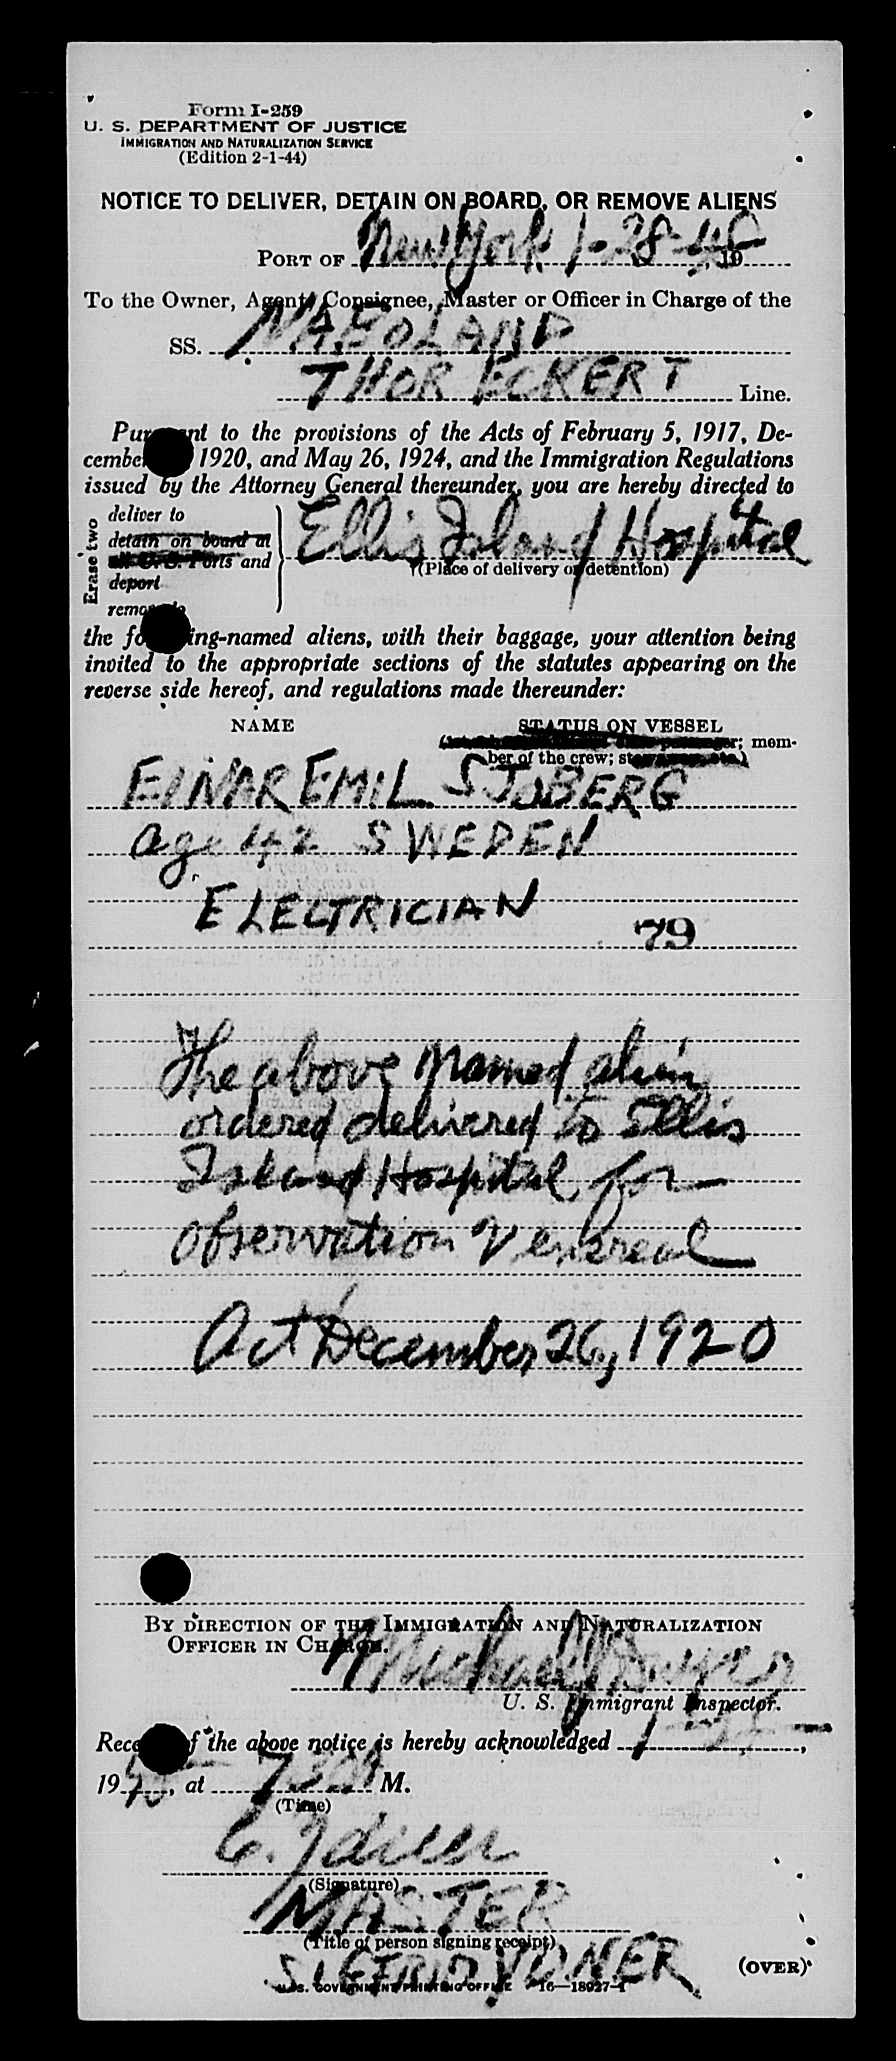 Form I-259
U. S. DEPARTMENT OF JUSTICE
IMMIGRATION AND NATURALIZATION SERVICE
(Edition 2-1-44)
NOTICE TO DELIVER, DETAIN ON BOARD, OR REMOVE ALIENS
PORT OF New York 1-28- 19
To the Owner, Agent, Consignee, Master or Officer in Charge of the
SS. NABOLAND
THOR ECKERT Line.
Pursuant to the provisions of the Acts of February 5, 1917, De-
cember 1920, and May 26, 1924, and the Immigration Regulations
issued by the Attorney General thereunder, you are hereby directed to
Erase two
deliver to
detain on board at
all U. S. Ports and
deport
remove
Ellis Island Hospital
(Place of delivery or detention)
the following-named aliens, with their baggage, your attention being
invited to the appropriate sections of the statutes appearing on the
reverse side hereof, and regulations made thereunder:
NAME STATUS ON VESSEL
passenger; mem-
ber of the crew;
EINAR EMIL SJOBERG
age 42 SWEDEN
ELECTRICIAN
79
The above named alien
ordered delivered to Ellis
Island Hospital for
observation Venereal
Act December 26, 1920
BY DIRECTION OF THE IMMIGRATION AND NATURALIZATION
OFFICER IN CHARGE.
Michael Dwyer
U. S. Immigrant Inspector.
Receipt of the above notice is hereby acknowledged
19 , at M.
(Time)
(Signature)
MASTER
(Title of person signing receipt)
(OVER)
U. S. GOVERNMENT PRINTING OFFICE 16—18027-1